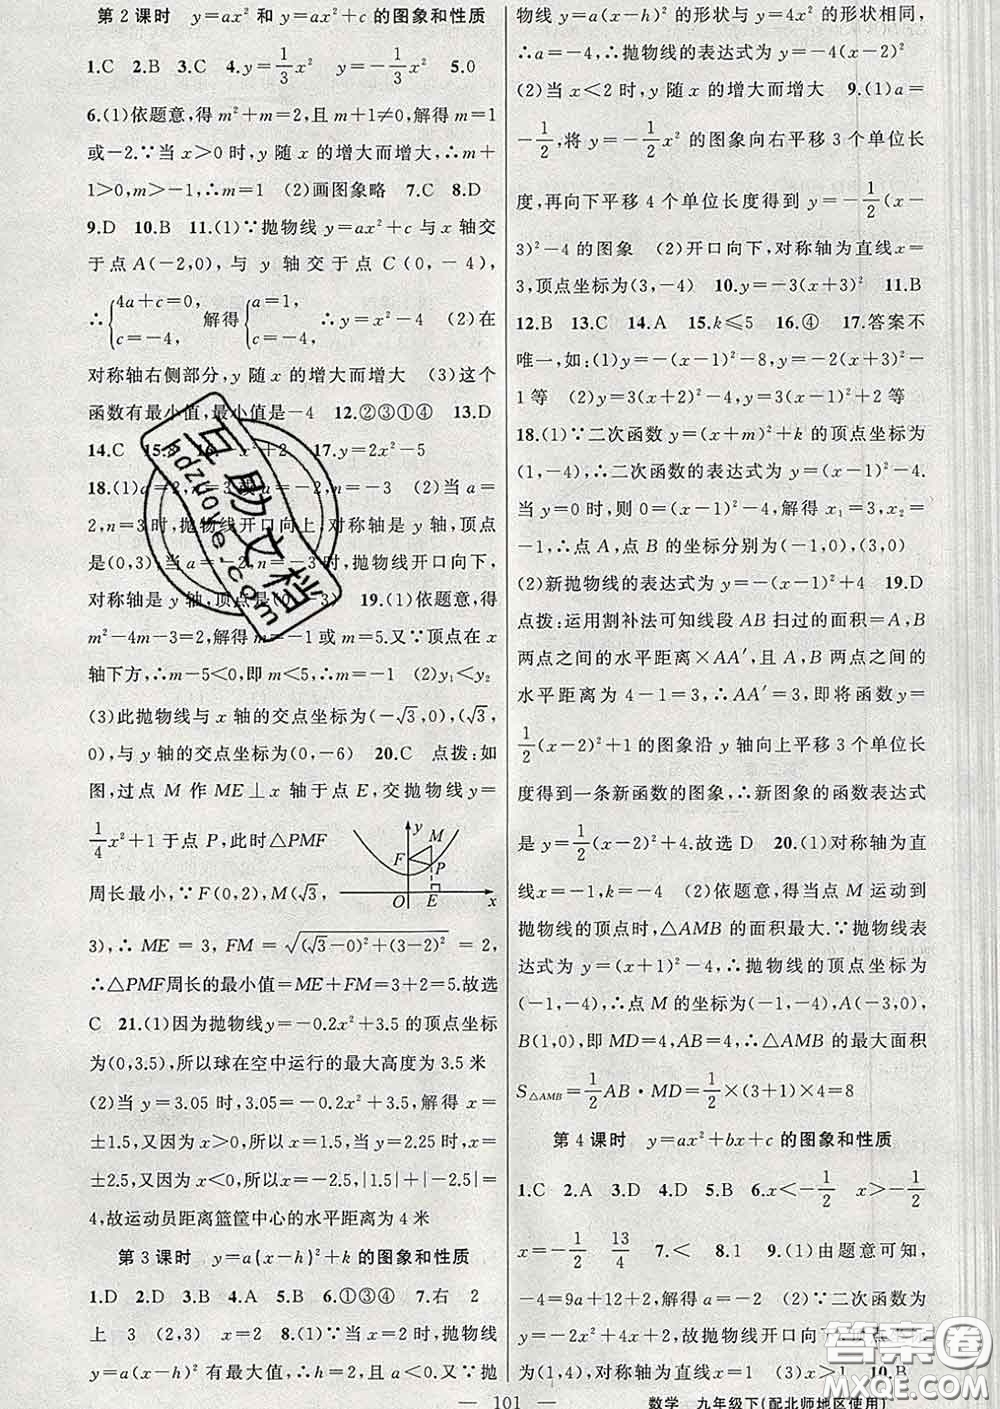 第2课时 y=ax²和y=ax²+c的图象和性质
1.C 2.B 3.C 4.y=1/3x² y=-1/3x² 5.0
6.(1)依题意,得m²+m=2,且m+1≠0,解得m=1
或-2.∵当x>0时,y随x的增大而增大,∴m+
1>0,m>-1,∴m=1 (2)画图象略 7.C 8.D
9.D 10.B 11.(1)∵抛物线y=ax²+c与x轴交
于点A(-2,0),与y轴交于点C(0,-4),
∴{4a+c=0, c=-4, 解得{a=1, c=-4, ∴y=x²-4 (2)在
对称轴右侧部分,y随x的增大而增大 (3)这个
函数有最小值,最小值是-4 12.②③①④ 13.D
14.C x²+2 17.y=2x²-5
18.(1)a=2,n=3或a=-2,n=-3 (2)当a=
2,n=3时,抛物线开口向上,对称轴是y轴,顶点
是(0,3),当a=-2,n=-3时,抛物线开口向下,
对称轴是y轴,顶点是(0,-3) 19.(1)依题意,得
m²-4m-3=2,解得m=-1或m=5.又∵顶点在x
轴下方,∴m-5<0,即m<5,∴m=-1 (2)y₁<y₂
(3)此抛物线与x轴的交点坐标为(-√3,0),(√3,
0),与y轴的交点坐标为(0,-6) 20.C 点拨:如
图,过点M作ME⊥x轴于点E,交抛物线y=
1/4x²+1于点P,此时△PMF
周长最小,∵F(0,2),M(√3,
y M F P O E x
3),∴ME=3,FM=√((√3-0)²+(3-2)²)=2,
∴△PMF周长的最小值=ME+FM=3+2=5.故选
C 21.(1)因为抛物线y=-0.2x²+3.5的顶点坐标
为(0,3.5),所以球在空中运行的最大高度为3.5米
(2)当y=3.05时,3.05=-0.2x²+3.5,解得x=
±1.5,又因为x>0,所以x=1.5,当y=2.25时,x=
±2.5,又因为x<0,所以x=-2.5,|1.5|+|-2.5|=
4,故运动员距离篮筐中心的水平距离为4米
第3课时 y=a(x-h)²+k的图象和性质
1.D 2.D 3.B 4.A 5.B 6.①③④ 7.右 2
上 3 (2,3) x=2 8.(1)∵当x=2时,抛物线
y=a(x-h)²有最大值,∴h=2,且a<0.又∵抛
物线y=a(x-h)²的形状与y=4x²的形状相同,
∴a=-4,∴抛物线的表达式为y=-4(x-2)²
(2)当x<2时,y随x的增大而增大 9.(1)a=
-1/2,将y=-1/2x²的图象向右平移3个单位长
度,再向下平移4个单位长度得到y=-1/2(x-
3)²-4的图象 (2)开口向下,对称轴为直线x=
3,顶点坐标为(3,-4) 10.y=-3(x+3)² 11.B
12.B 13.C 14.A 15.k≤5 16.④ 17.答案不
唯一,如:(1)y=-(x-1)²-8,y=-2(x+3)²-
1等 (2)y=3(x+2)²-4,y=3(x-1)²+2等
18.(1)∵二次函数y=(x+m)²+k的顶点坐标为
(1,-4),∴二次函数的表达式为y=(x-1)²-4.
当y=0时,则0=(x-1)²-4.解得x₁=3,x₂=
-1,∴点A,点B的坐标分别为(-1,0),(3,0)
(2)新抛物线的表达式为y=-(x-1)²+4 19.D
点拨:运用割补法可知线段AB扫过的面积=A,B
两点之间的水平距离×AA′,且A,B两点之间的
水平距离为4-1=3,∴AA′=3,即将函数y=
1/2(x-2)²+1的图象沿y轴向上平移3个单位长
度得到一条新函数的图象,∴新图象的函数表达式
是y=1/2(x-2)²+4.故选D 20.(1)对称轴为直
线x=-1,k=-4 (2)依题意,得当点M运动到
抛物线的顶点时,△AMB的面积最大.∵抛物线表
达式为y=(x+1)²-4,∴抛物线的顶点坐标为
(-1,-4),∴点M的坐标为(-1,-4),A(-3,0),
B(1,0),即MD=4,AB=4,∴△AMB的最大面积
S△AMB=1/2AB·MD=1/2×(3+1)×4=8
第4课时 y=ax²+bx+c的图象和性质
1.C 2.A 3.D 4.D 5.B 6.x<-1/2 x>-1/2
x=-1/2 13/4 7.< 8.1 9.(1)由题意可知,
-4=9a+12+2,解得a=-2 (2)∵二次函数为
y=-2x²+4x+2,故抛物线开口向下,顶点坐标
为(1,4),对称轴为直线x=1 (3)x>1 10.B
— 101 — 数学 九年级下(配北师地区使用)
互助文档
hdzuoye.com
答案圈
MXQE.COM